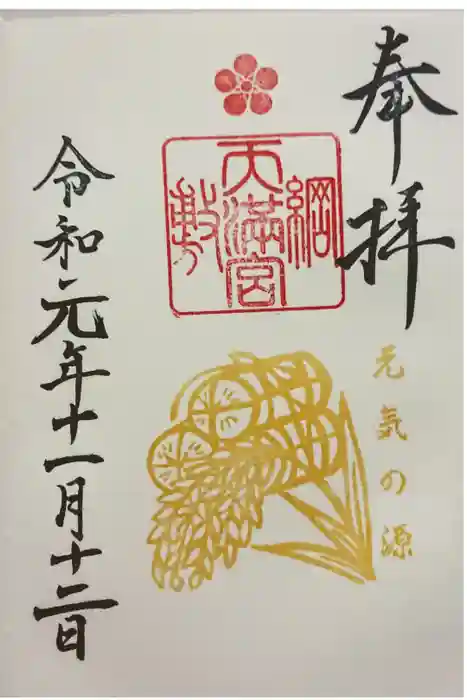 奉拝
綱敷天満宮
元気の源
令和元年十一月十二日